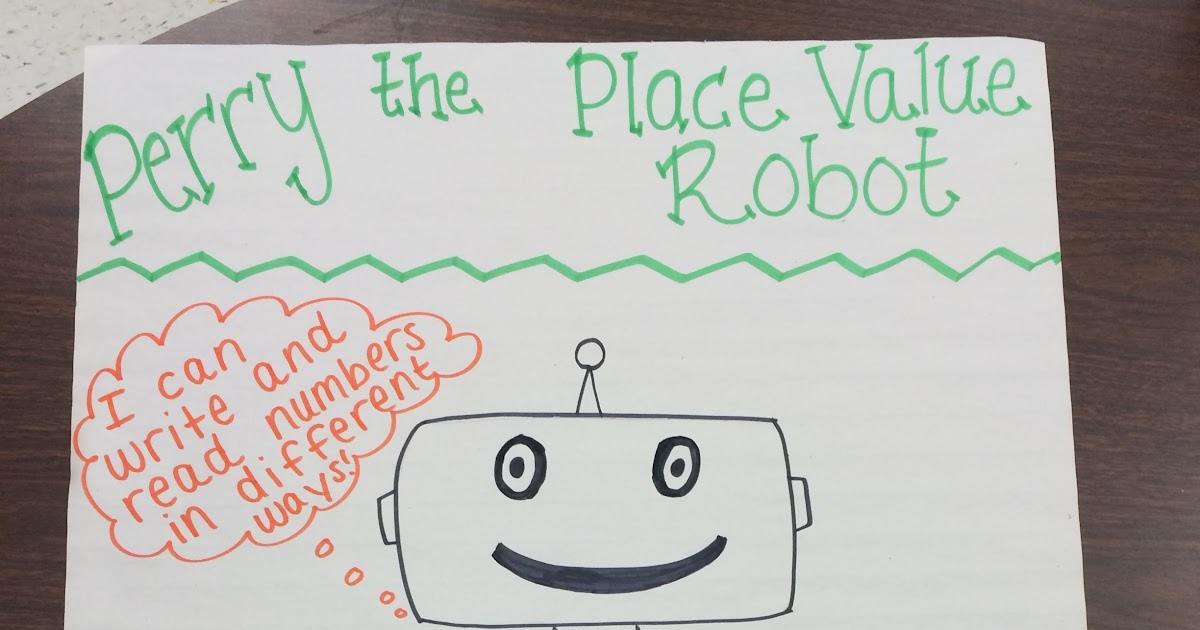 Perry the Place Value
Robot
I can
write and
read numbers
in different
ways!